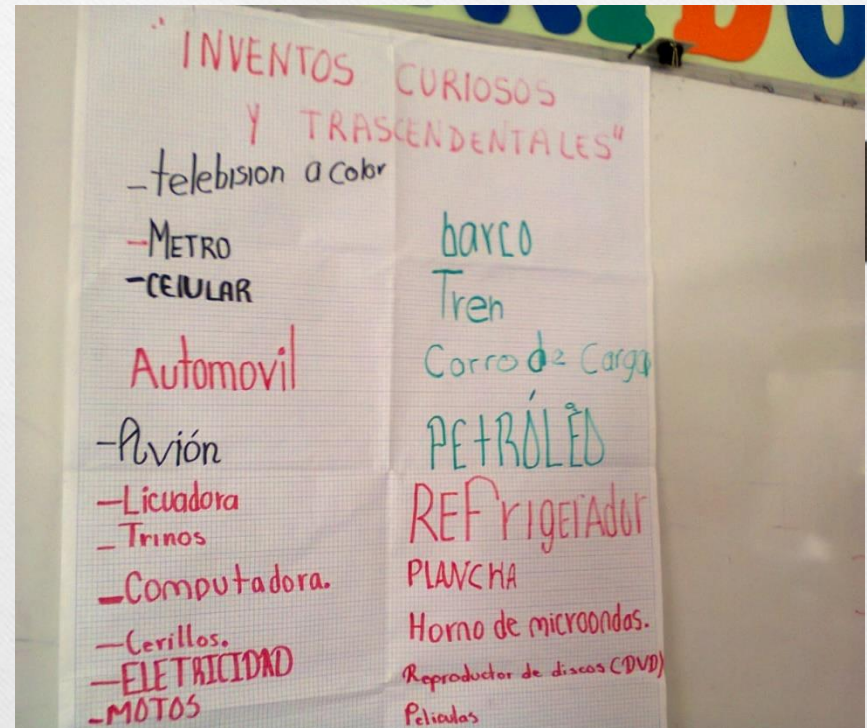 "INVENTOS CURIOSOS
Y TRASCENDENTALES"
-telebision a color
-METRO
-CElULAR
Automovil
-Avión
-Licuadora
-Trinos
-Computadora.
-Cerillos.
-ELETRICIDAD
-MOTOS
barco
Tren
Corro de Carga
PEtRÓLEO
REFrigerAdor
PLANCHA
Horno de microondas.
Reproductor de discos (DVD)
Peliculas